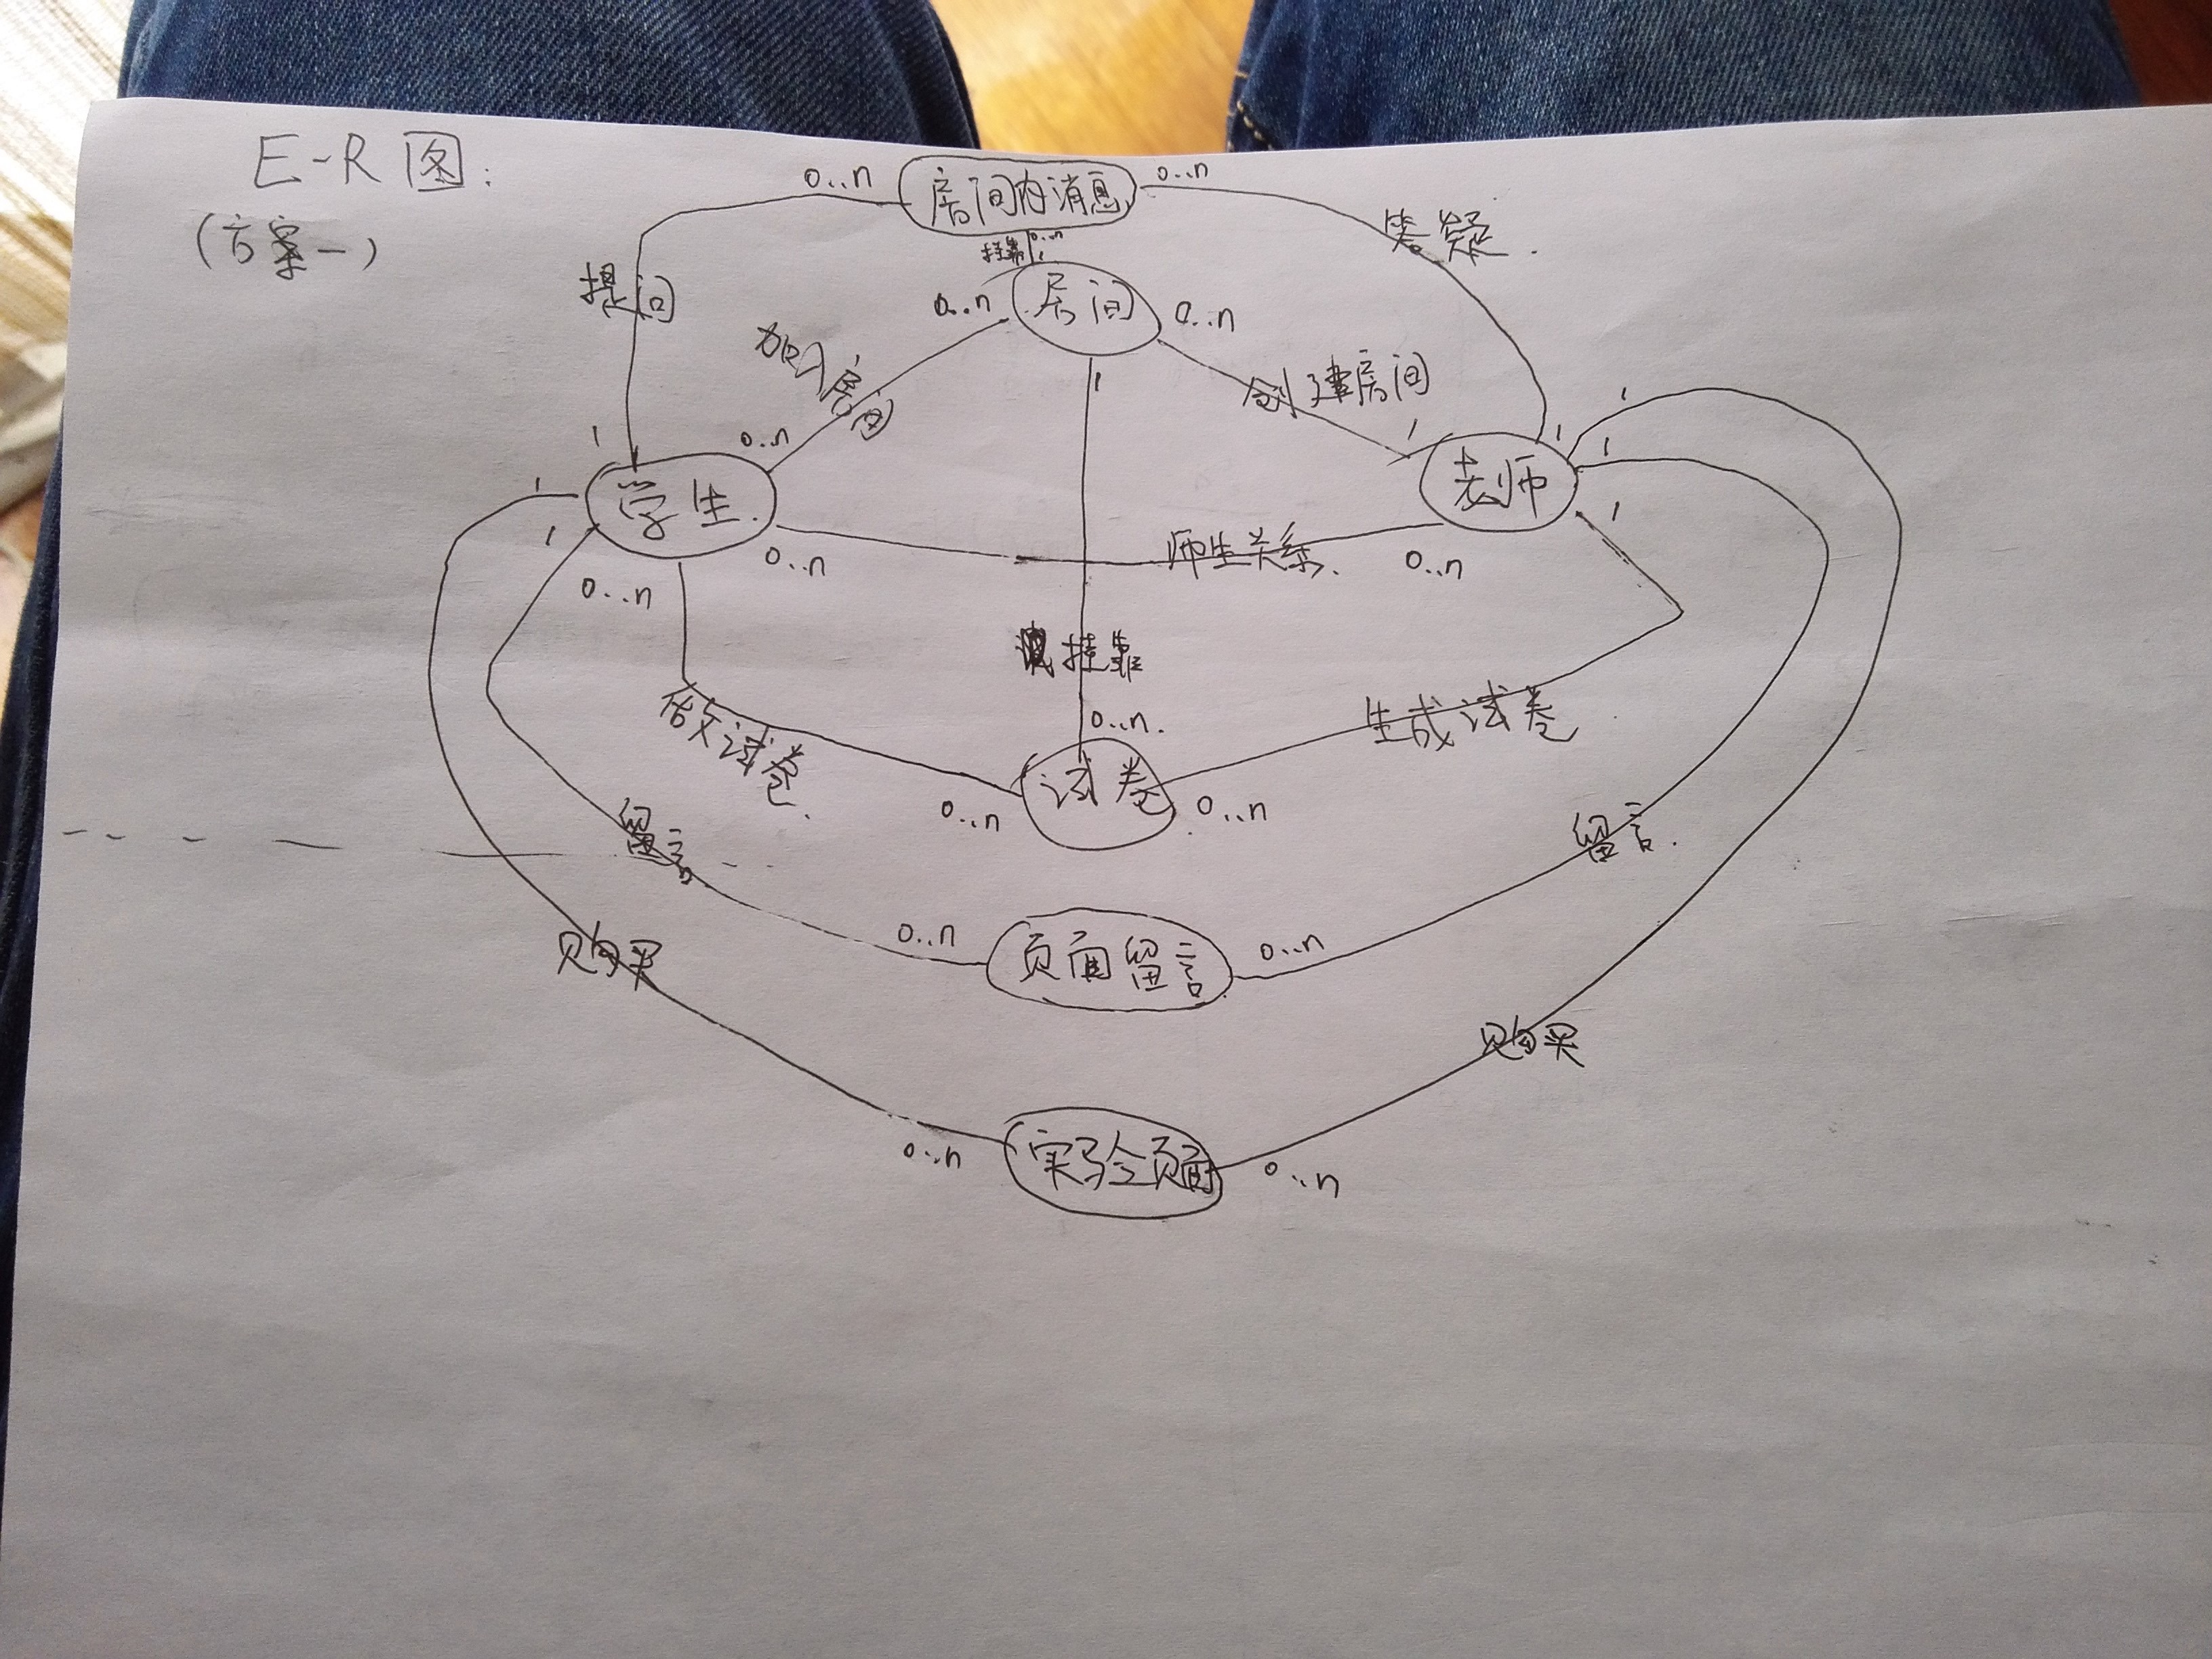 E-R图:
(方案一)
0..n
房间内消息
0..n
答疑.
挂靠
0..n
1
提问
0..n
房间
0..n
加入房间
1
创建房间
1
1
0..n
1
1
1
学生.
老师
1
1
1
0..n
师生关系.
0..n
0..n
挂靠
做试卷.
0..n.
生成试卷
试卷
0..n
0..n
留言
留言.
0..n
页面留言
0..n
购买
购买
0..n
实验页面
0..n